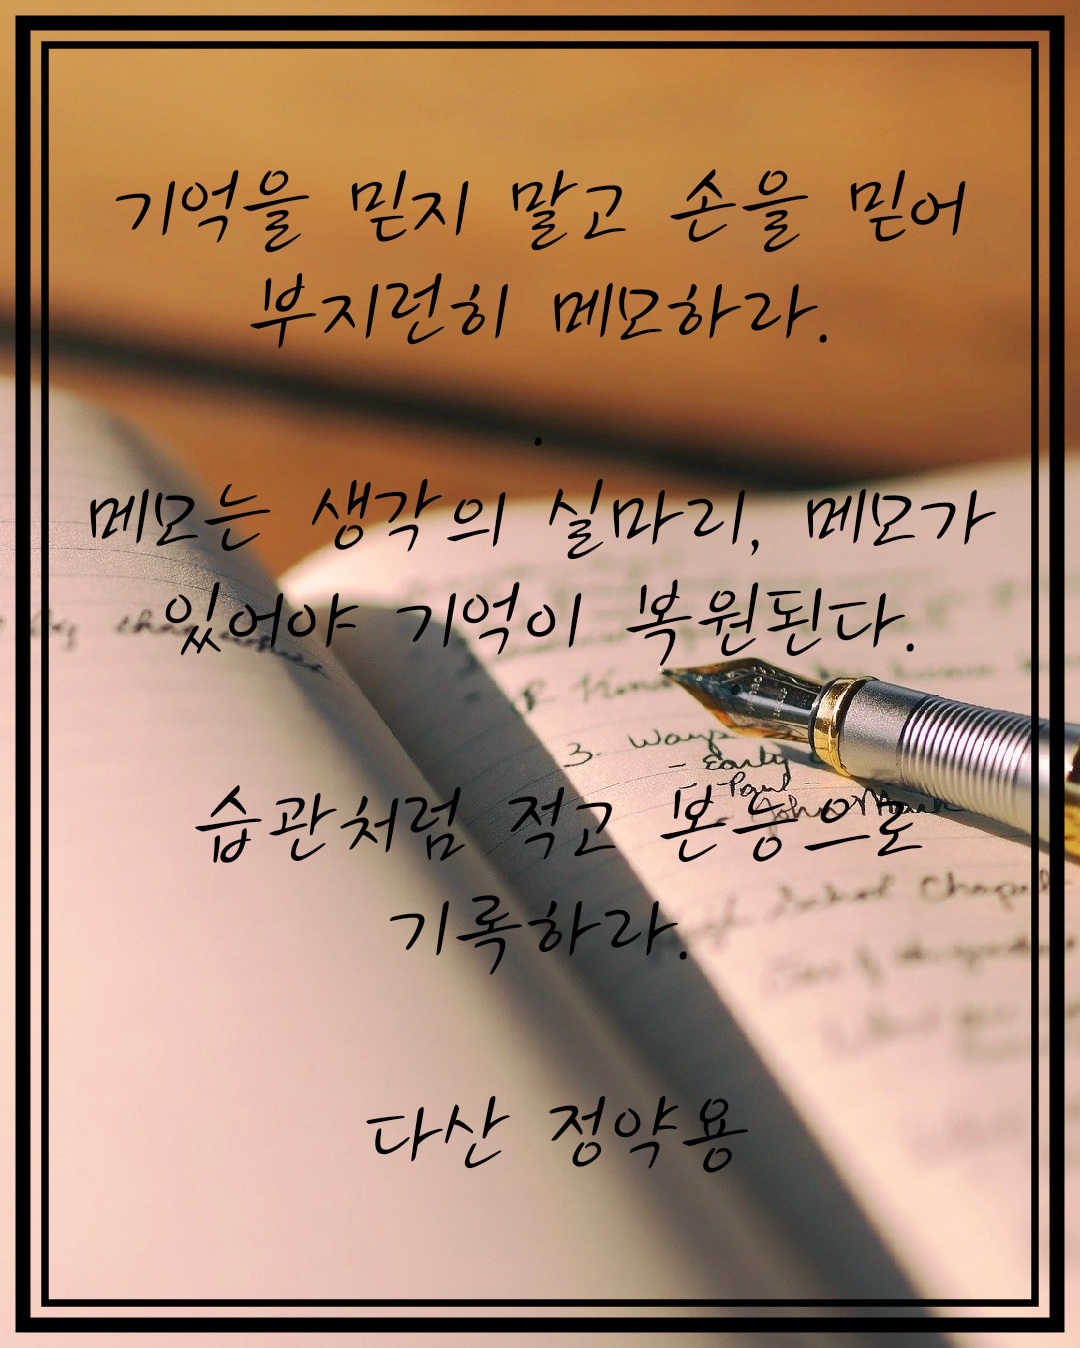 기억을 믿지 말고 손을 믿어
부지런히 메모하라.
.
메모는 생각의 실마리, 메모가
있어야 기억이 복원된다.
3. Ways
- Early
- Paul
- John Mark
습관처럼 적고 본능으로
기록하라.
School Chapel
다산 정약용